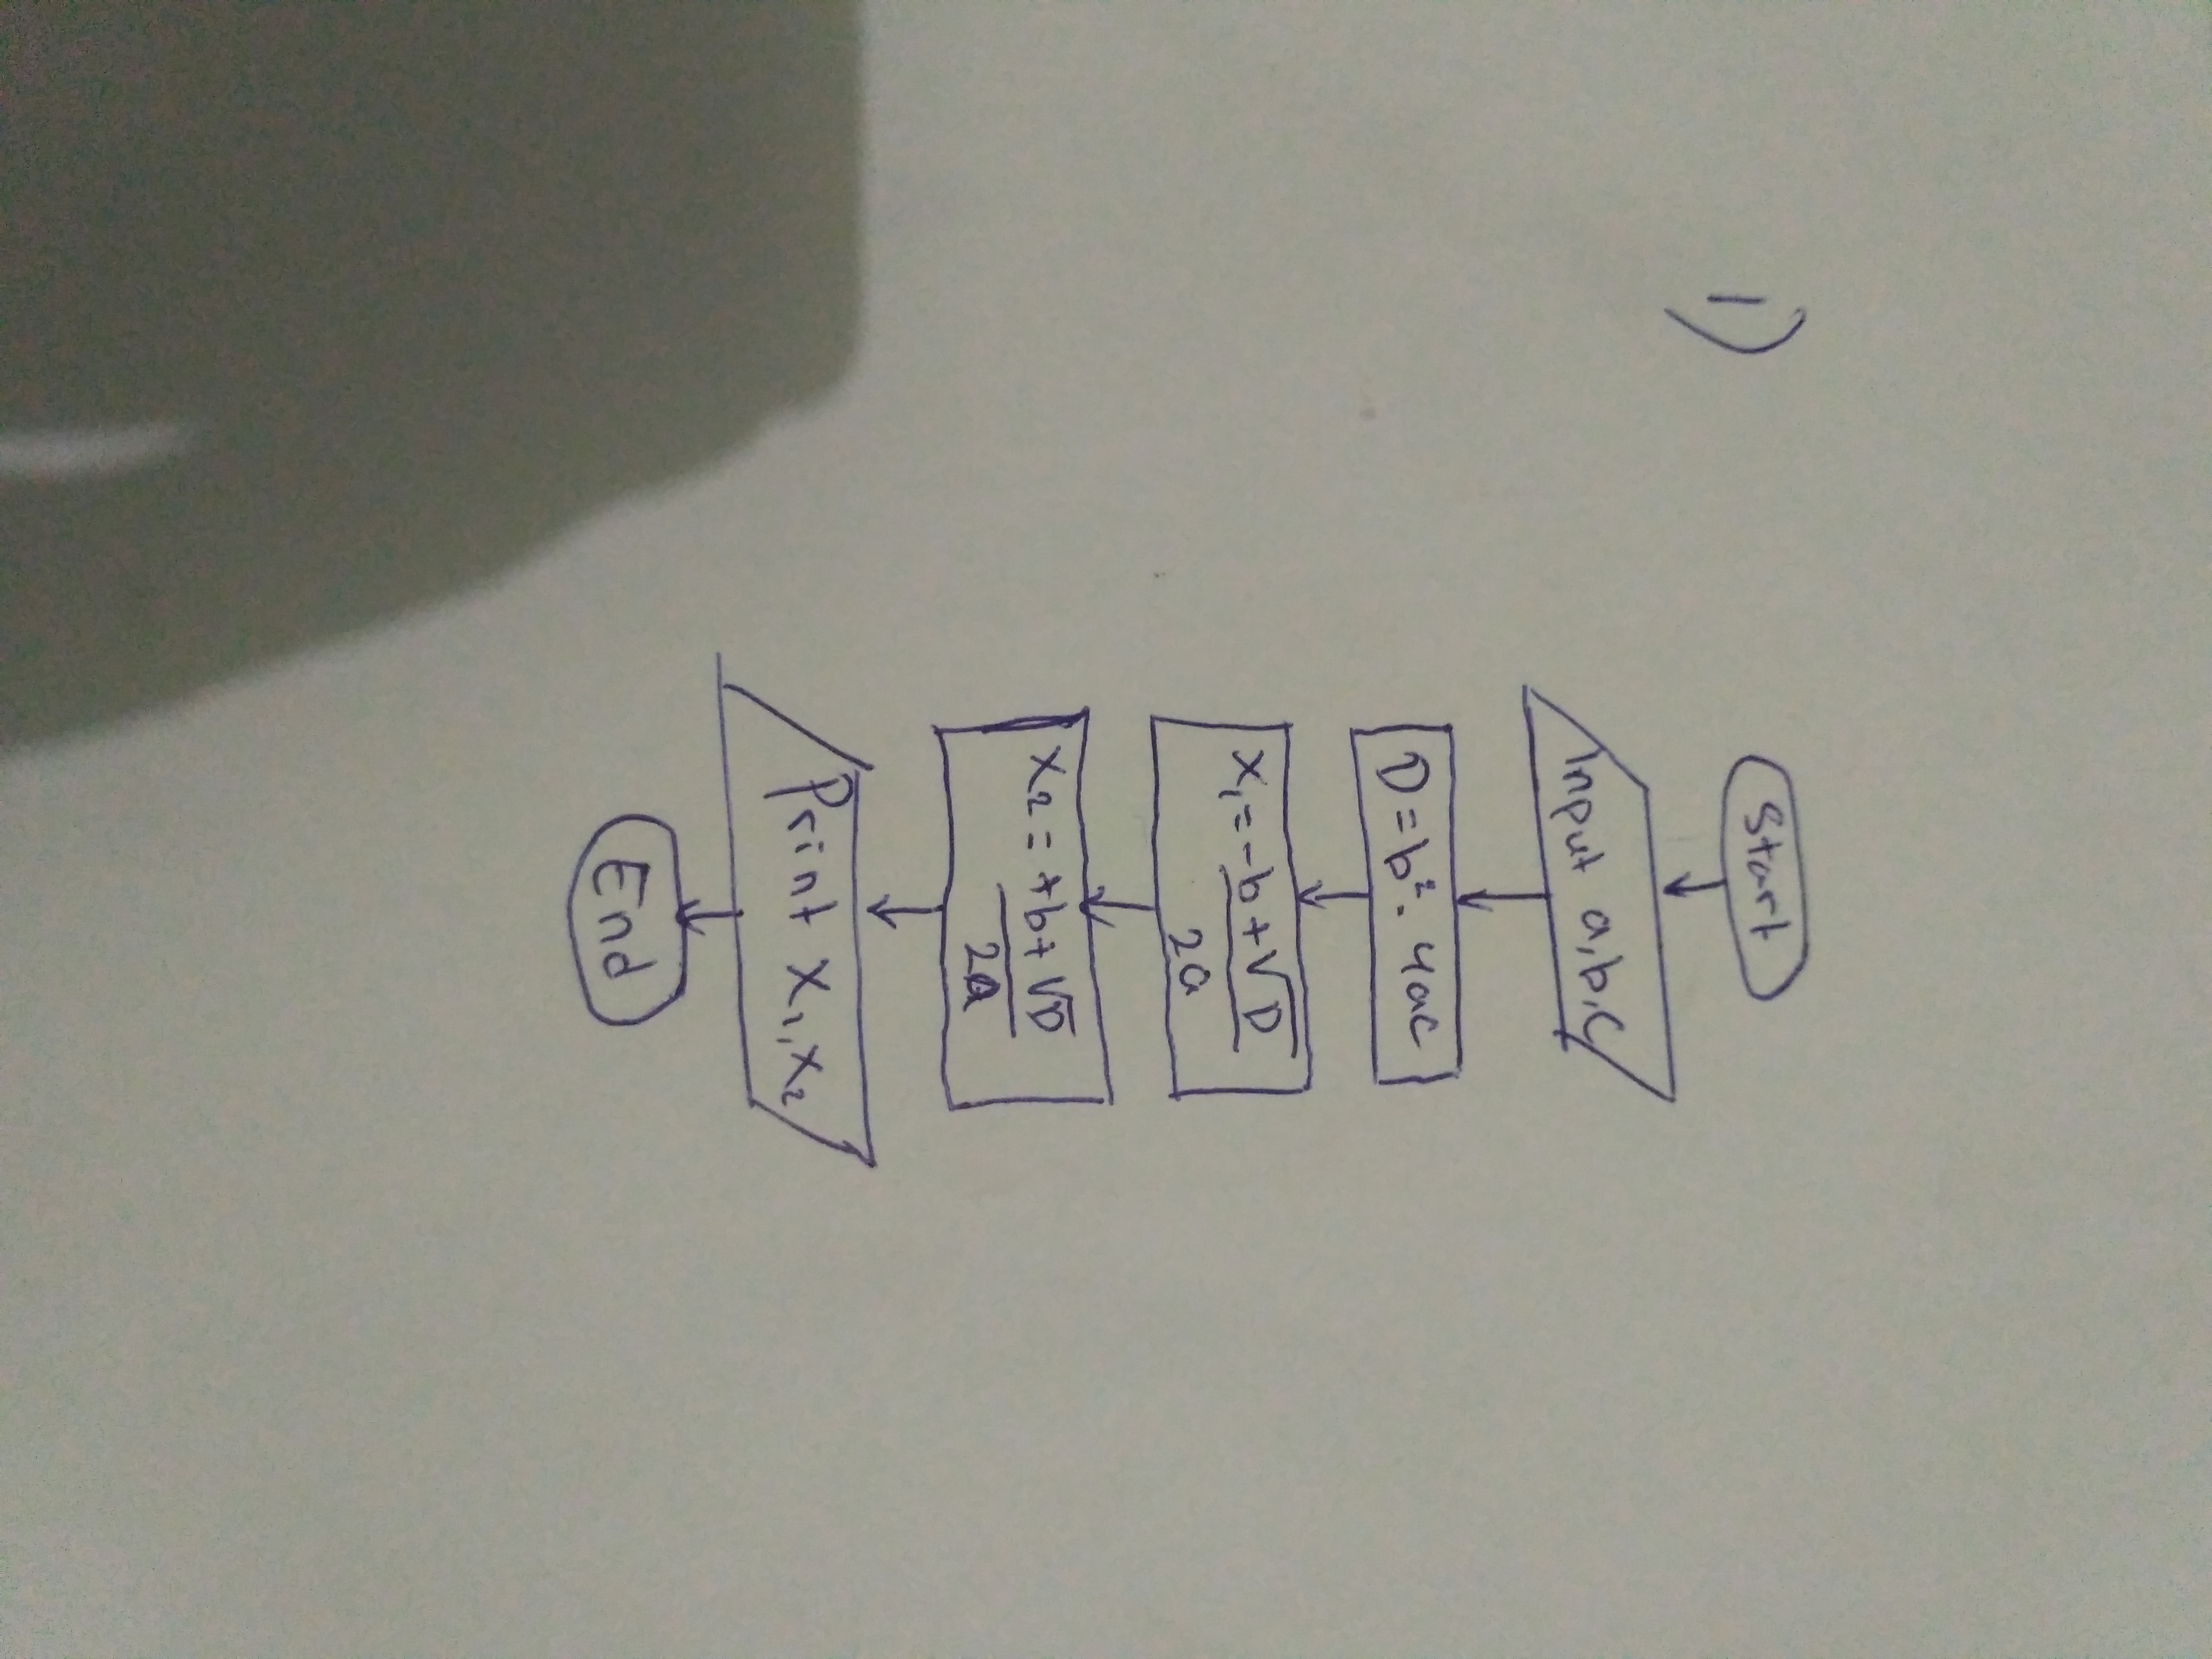 1)
Start
Input a,b,c
D=b². 4ac
x₁=-b+√D
2a
x₂=+b+√D
2a
Print x₁,x₂
End